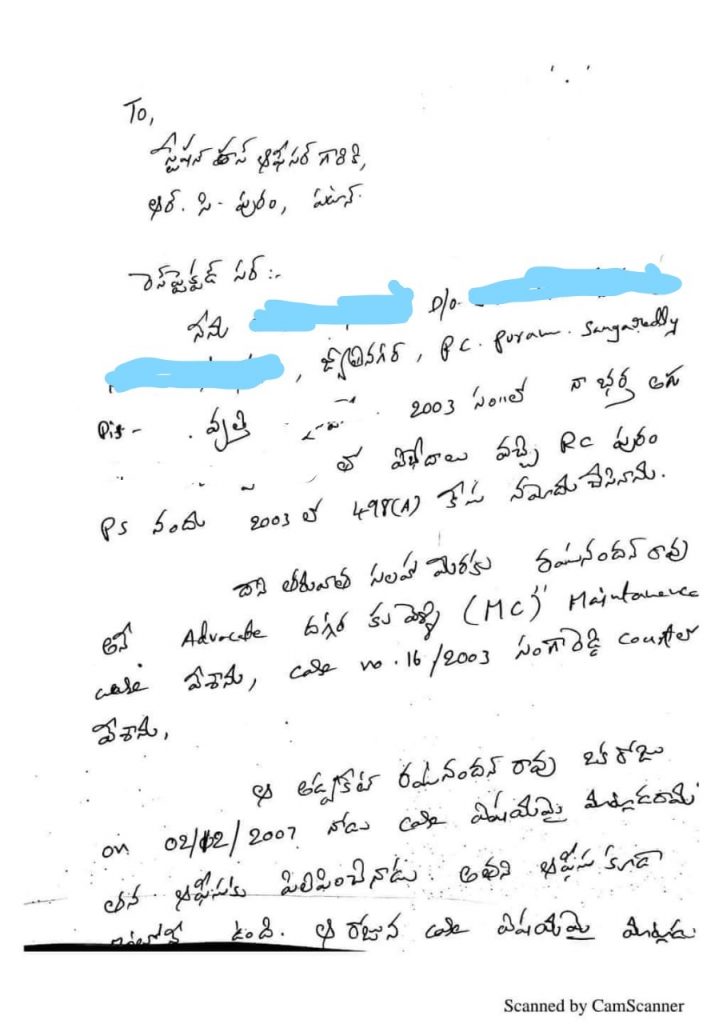 To,
స్టేషన్ హౌస్ ఆఫీసర్ గారికి,
ఆర్. సి. పురం, పటాన్.
రెస్పెక్టెడ్ సర్ :-
నేను D/o.
, జ్యోతినగర్, P.C. Puram. Sangareddy
Dist - . వృత్తి 2003 సం॥లో నా భర్త అగు
తో విభేదాలు వచ్చి RC పురం
PS నందు 2003 లో 498(A) కేసు నమోదు చేసినాను.
దాని తరువాత సలహా మేరకు రఘునందన్ రావు
అనే Advocate దగ్గర కు వెళ్ళి (MC) Maintanence
case వేశాను, case no. 16/2003 సంగారెడ్డి courtలో
వేశాను,
ఆ అడ్వకేట్ రఘునందన్ రావు ఒక రోజు
on 02/12/2007 నాడు case విషయమై మాట్లాడదామని
తన ఆఫీసుకు పిలిపించినాడు. అతని ఆఫీసు కూడా
ఉంది. ఆ రోజున case విషయమై మాట్లాడు
Scanned by CamScanner